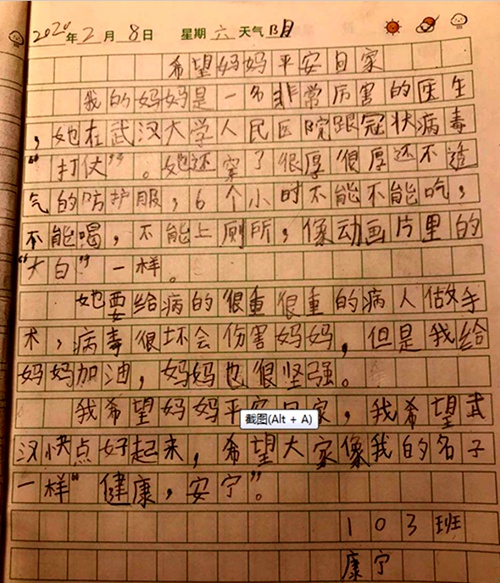 2020年2月8日 星期六 天气阴
希望妈妈平安回家
我的妈妈是一名非常厉害的医生
，她在武汉大学人民医院跟冠状病毒
“打仗”。她还穿了很厚很厚还不透
气的防护服，6个小时不能不能吃，
不能喝，不能上厕所，像动画片里的
“大白”一样。
她要给病的很重很重的病人做手
术，病毒很坏会伤害妈妈，但是我给
妈妈加油，妈妈也很坚强。
我希望妈妈平安回家，我希望武
汉快点好起来，希望大家像我的名子
一样“健康，安宁”。
103班
康宁
截图(Alt + A)